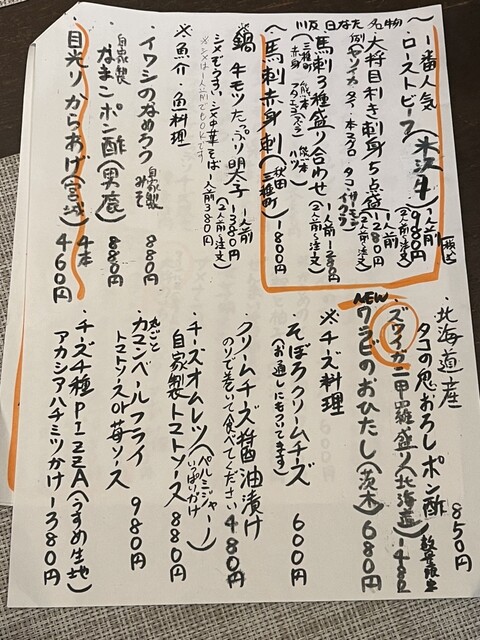 ～川反 日なた 名物～
一番人気
ローストビーフ(米沢牛) 1人前 980円 (税込)
(2人前〜注文)
大将目利き刺身5点盛 1人前 1280円
(2人前〜注文)
馬刺3種盛り合わせ 1人前
(2人前〜注文)
馬刺赤身刺 1800円
鍋 牛モツたっぷり明太子 1人前 1380円
(2人前〜注文)
シメぞうすい、シメ中華そば 1人前380円
※シメは1人前でもOKです
※魚介・魚料理
イワシのなめろう 自家製みそ 880円
自家製
なまこポン酢(男鹿) 880円
目光りからあげ(宮城) 4本 460円
・北海道産
タコの鬼おろしポン酢 850円
ズワイガニ甲羅盛り(北海道) 1480
NEW
ワラビのおひたし(茨木) 680円
※チーズ料理
そぼろクリームチーズ 600円
(お通しにもついてます)
クリームチーズ醤油漬け 480円
のりで巻いて食べてください
チーズオムレツ(ペルミジャーノいっぱいがけ)
自家製トマトソース 880円
丸ごと
カマンベールフライ 980円
トマトソースor苺ソース
チーズ4種PIZZA(うすめ生地)
アカシアハチミツかけ 1380円